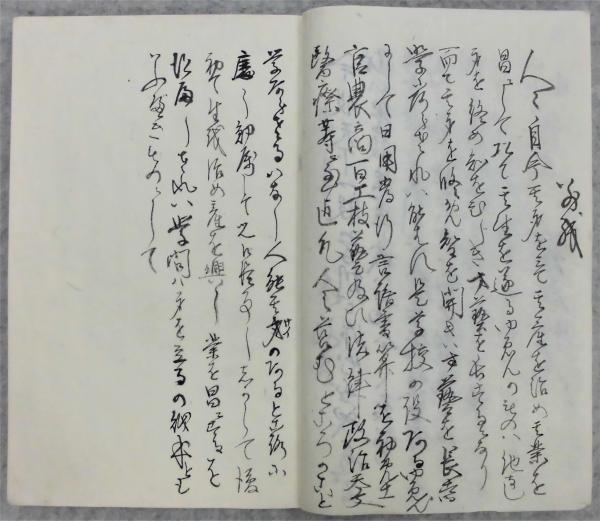 人々自今其身を立て其産を治め其業を
昌にして以て其生を遂るゆゑんのものハ他なし
身を修め智をひらき才藝を長するによるなり
而て其身を修め智を開き才藝を長する
学にあらされハ能はす是学校の設あるゆゑん
にして日用常行言語書算を初め士
官農商百工技藝及ひ法律政治天文
醫療等に至迄凡人の営むところのこと
学あらさるハなし人能其才のあるところに
應し勉励して之に従事ししかして後
初て生を治め産を興し業を昌にするを
得へしされハ学問ハ身を立るの財本とも
いふへきものにして